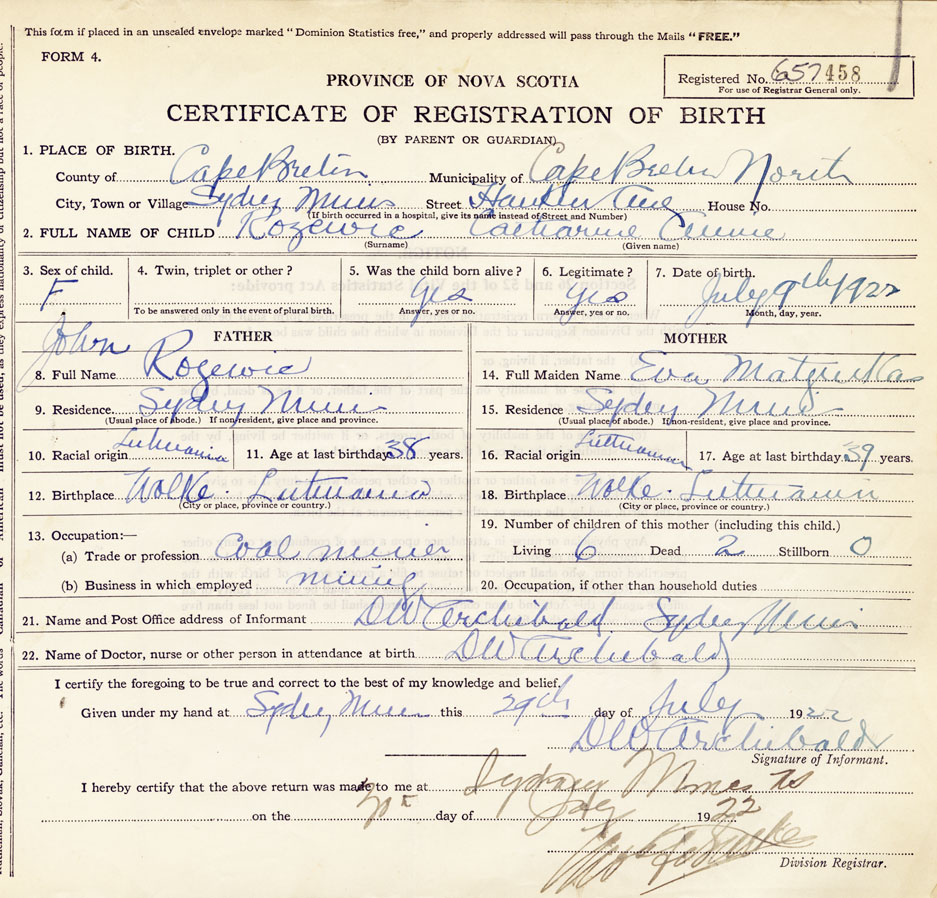 This form if placed in an unsealed envelope marked "Dominion Statistics free," and properly addressed will pass through the Mails "FREE."
FORM 4.
Registered No. 657458
For use of Registrar General only.
PROVINCE OF NOVA SCOTIA
CERTIFICATE OF REGISTRATION OF BIRTH
(BY PARENT OR GUARDIAN)
1. PLACE OF BIRTH.
County of Cape Breton Municipality of Cape Breton North
City, Town or Village Sydney Mines Street House No.
(If birth occurred in a hospital, give its name instead of Street and Number)
2. FULL NAME OF CHILD Rozewic Catharine Annie
(Surname) (Given name)
3. Sex of child. 4. Twin, triplet or other? 5. Was the child born alive? 6. Legitimate? 7. Date of birth.
F yes yes July 9th 1922
To be answered only in the event of plural birth. Answer, yes or no. Answer, yes or no. Month, day, year.
FATHER
John
8. Full Name Rozewic
9. Residence. Sydney Mines
(Usual place of abode.) If nonresident, give place and province.
10. Racial origin Lithuania 11. Age at last birthday 38 years.
12. Birthplace Wolke. Lithuania
(City or place, province or country.)
13. Occupation:—
(a) Trade or profession Coal miner
(b) Business in which employed mining
MOTHER
14. Full Maiden Name Eva
15. Residence Sydney Mines
(Usual place of abode.) If nonresident, give place and province.
16. Racial origin Lithuanian 17. Age at last birthday 39 years.
18. Birthplace Wolke. Lithuania
(City or place, province or country.)
19. Number of children of this mother (including this child.)
Living 6 Dead 2 Stillborn 0
20. Occupation, if other than household duties
21. Name and Post Office address of Informant DW Archibald Sydney Mines
22. Name of Doctor, nurse or other person in attendance at birth DW Archibald
I certify the foregoing to be true and correct to the best of my knowledge and belief.
Given under my hand at Sydney Mines this 29th day of July 1922
DW Archibald
Signature of Informant.
I hereby certify that the above return was made to me at Sydney Mines NS
on the day of July 1922
Division Registrar.